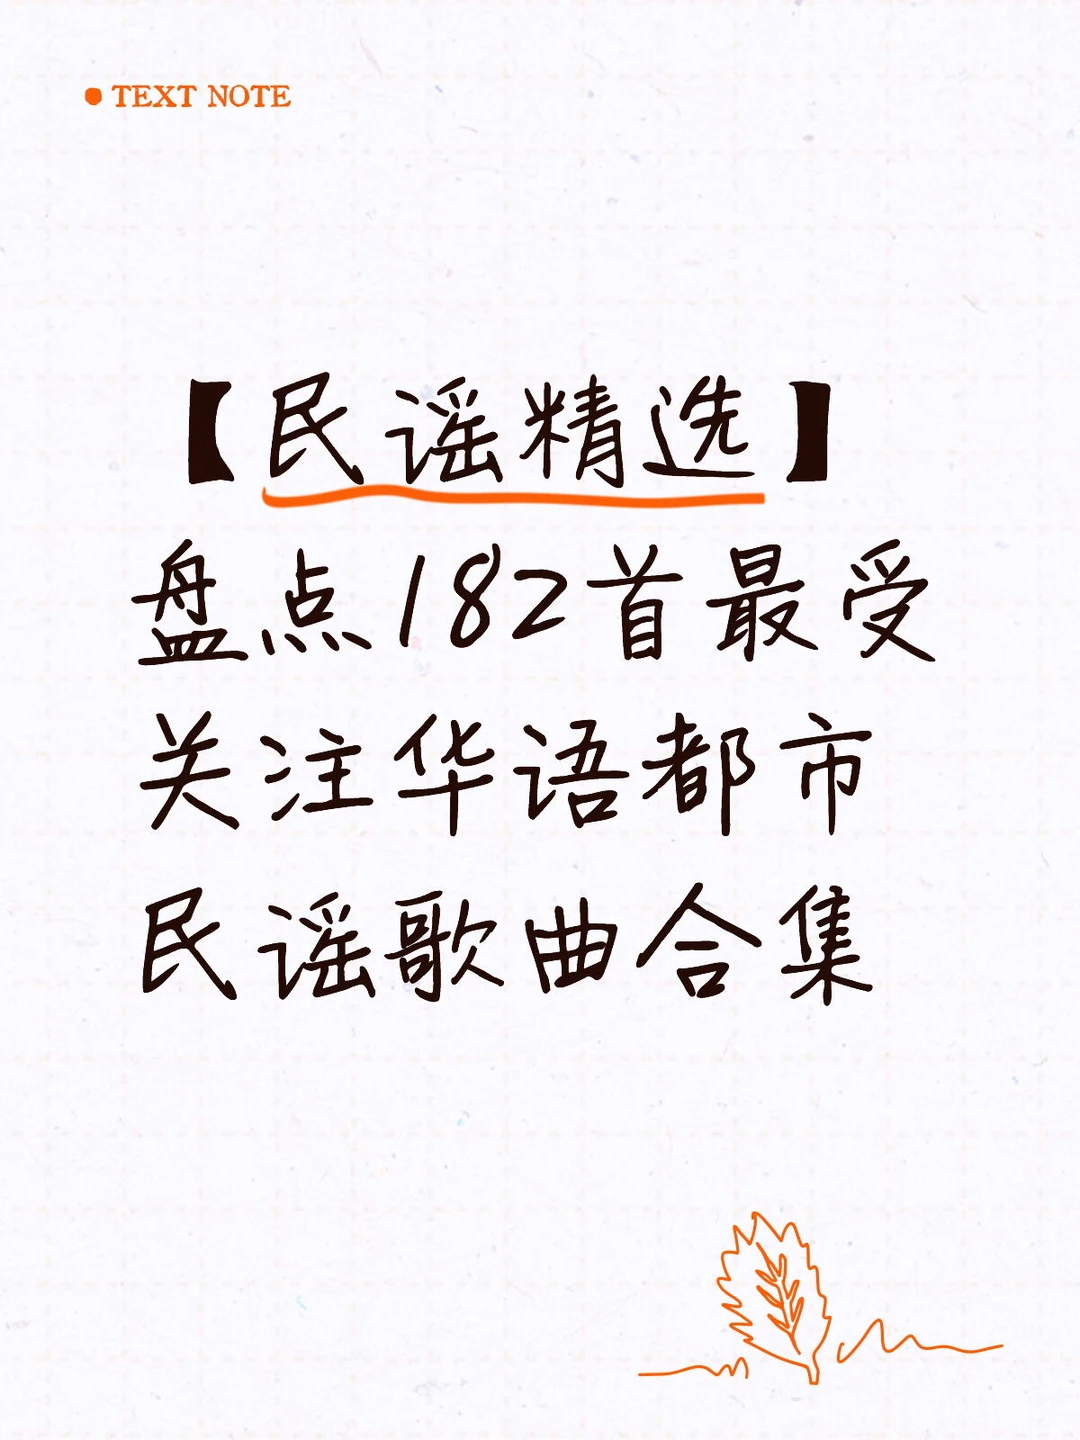 TEXT NOTE
【民谣精选】
盘点182首最受
关注华语都市
民谣歌曲合集